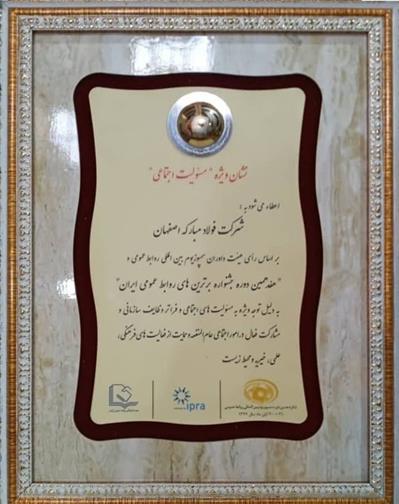 نشان ویژه "مسئولیت اجتماعی"
اعطاء می شود به :
شرکت فولاد مبارکه اصفهان
بر اساس رأی هیئت داوران سمپوزیوم بین المللی روابط عمومی و
"هفدهمین دوره جشنواره برترین های روابط عمومی ایران"
به دلیل توجه ویژه به مسئولیت های اجتماعی و فراتر از وظایف سازمانی و
مشارکت فعال در امور اجتماعی عام المنفعه و حمایت از فعالیت های فرهنگی،
علمی، خیریه و محیط زیست
ipra